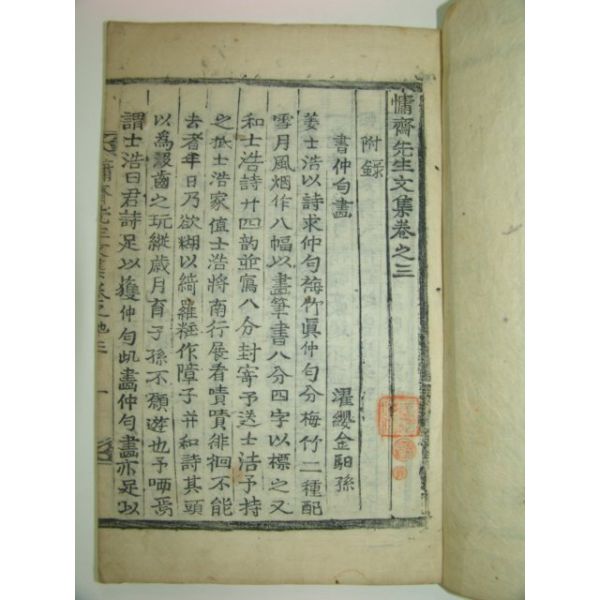 慵齋先生文集卷之三
附錄
書仲勻畫
濯纓金馹孫
姜士浩以詩求仲勻梅竹眞仲勻分梅竹二種配
雪月風烟作八幅以畫筆書八分四字以標之又
和士浩詩廿四韵並寫八分封寄予送士浩予持
之抵士浩家值士浩將南行展看嘖嘖徘徊不能
去者半日乃欲糊以綺羅粧作障子并和詩其頭
以爲齠齒之玩縱歲月育子孫不願遊也予哂焉
謂士浩曰君詩足以獲仲勻此畫仲勻畫亦足以
慵齋先生文集卷之三
一